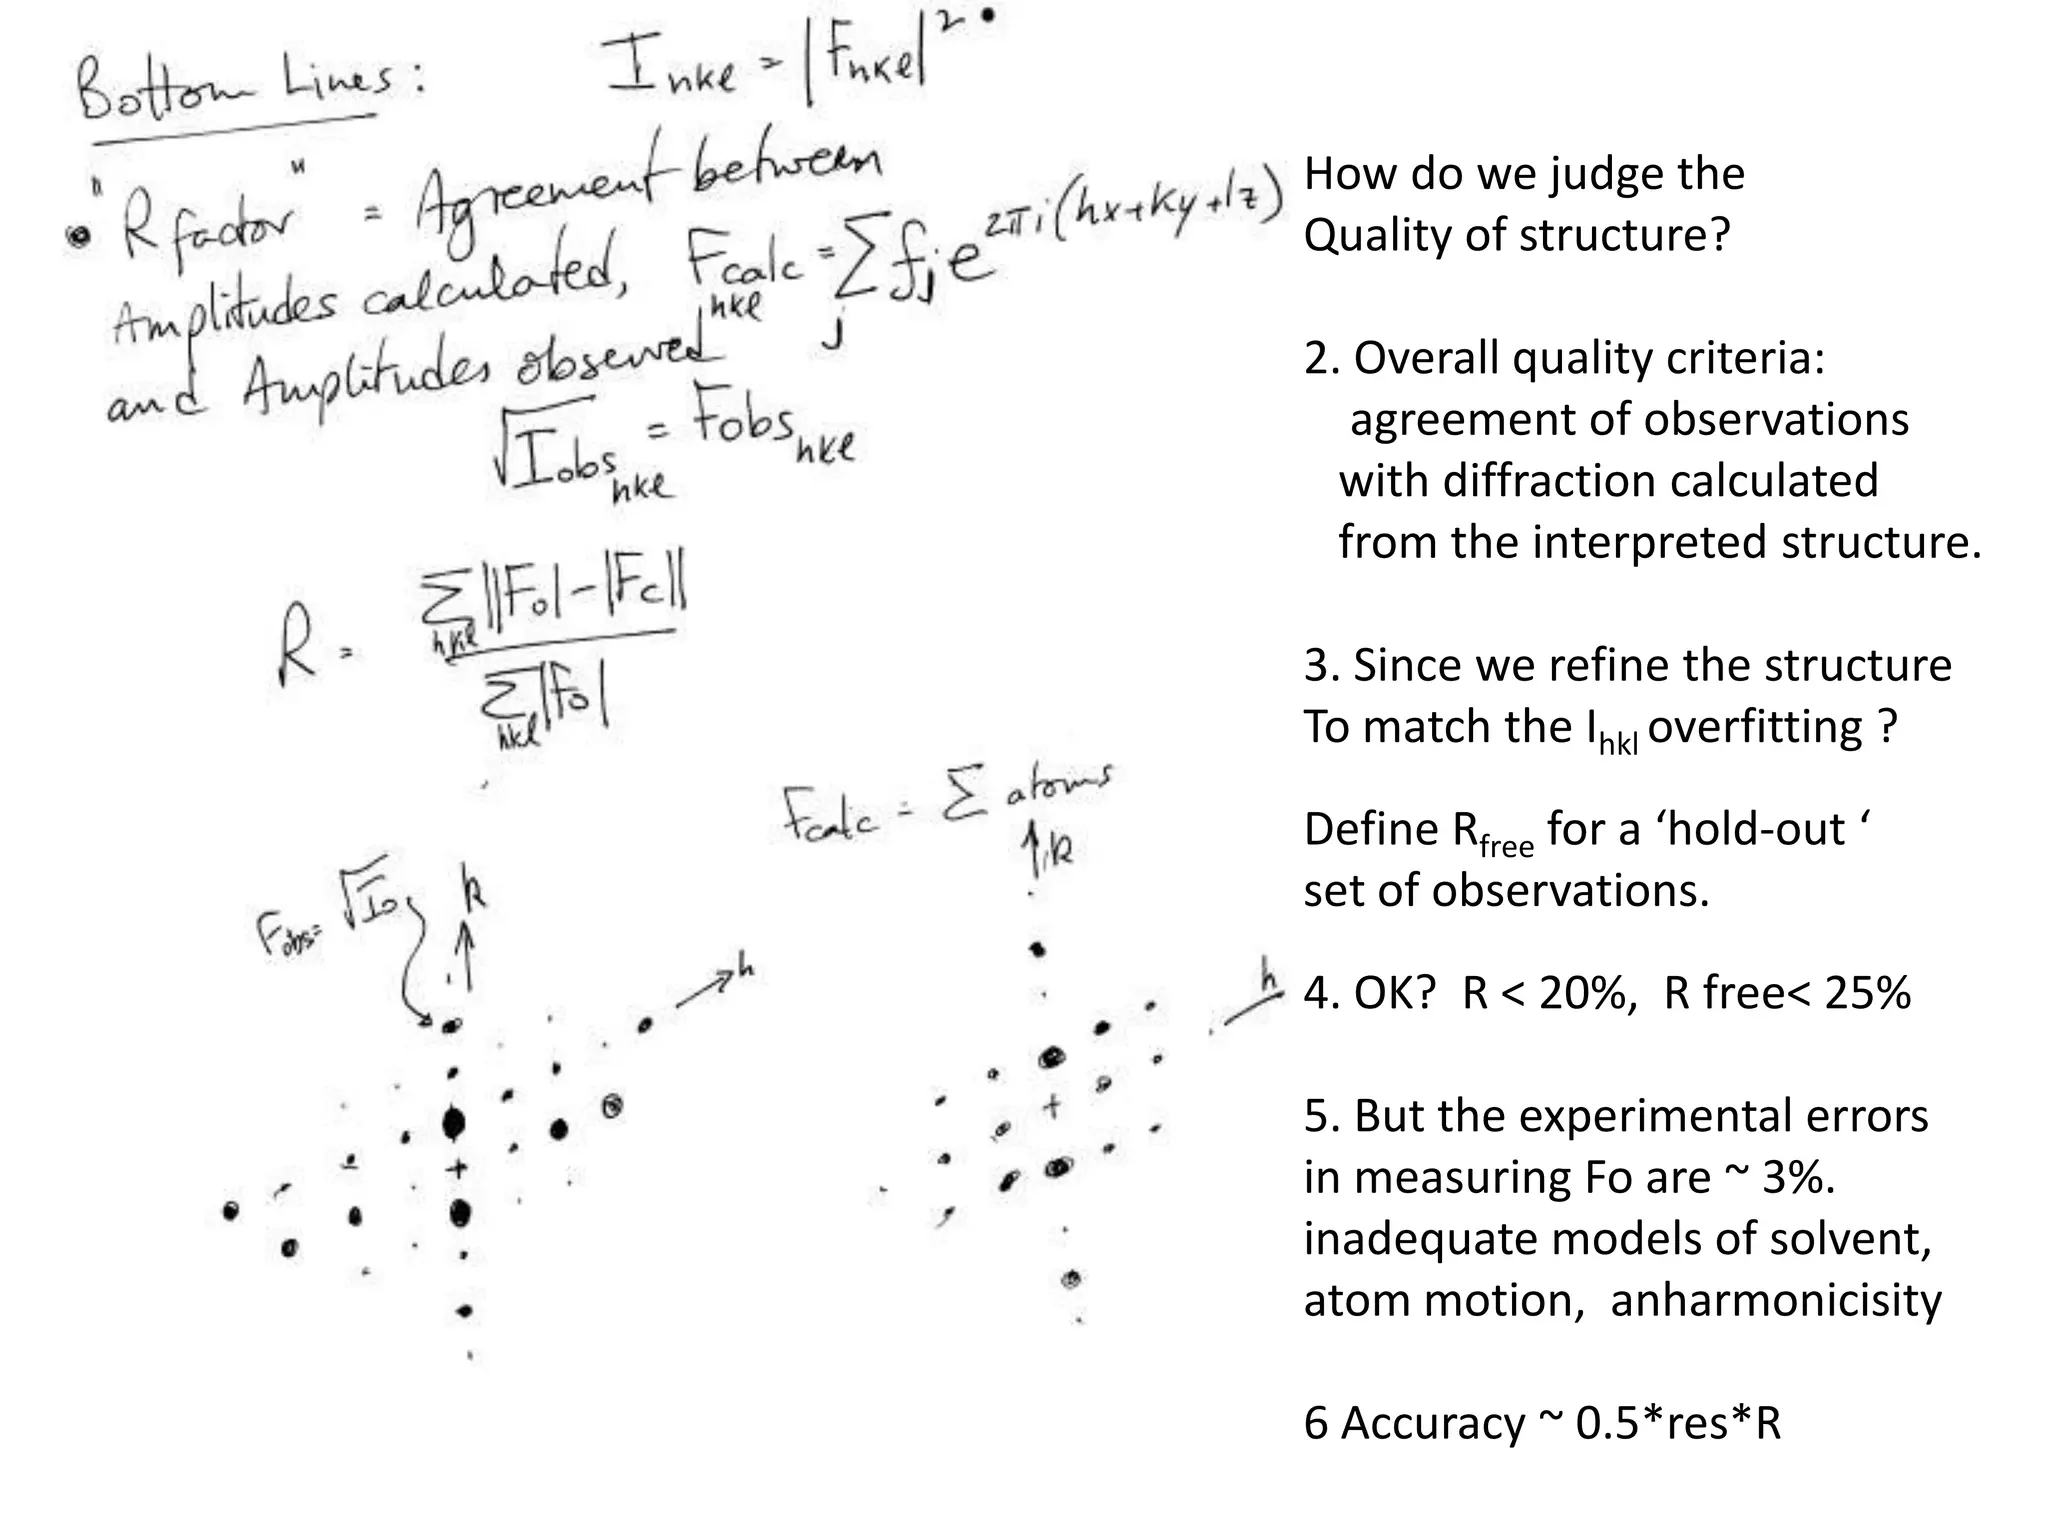 Bottom Lines: I hkl = |F hkl|² •
• "R factor" = Agreement between
Amplitudes calculated, F calc hkl = Σ j fj e 2πi(hx+ky+lz)
and Amplitudes observed
√I obs hkl = F obs hkl
R = Σ hkl ||Fo| - |Fc|| / Σ hkl |Fo|
Fcalc = Σ atoms
k
Fobs = √Io
k
h
h
How do we judge the
Quality of structure?
2. Overall quality criteria:
agreement of observations
with diffraction calculated
from the interpreted structure.
3. Since we refine the structure
To match the Ihkl overfitting ?
Define Rfree for a ‘hold-out ‘
set of observations.
4. OK? R < 20%, R free< 25%
5. But the experimental errors
in measuring Fo are ~ 3%.
inadequate models of solvent,
atom motion, anharmonicisity
6 Accuracy ~ 0.5*res*R